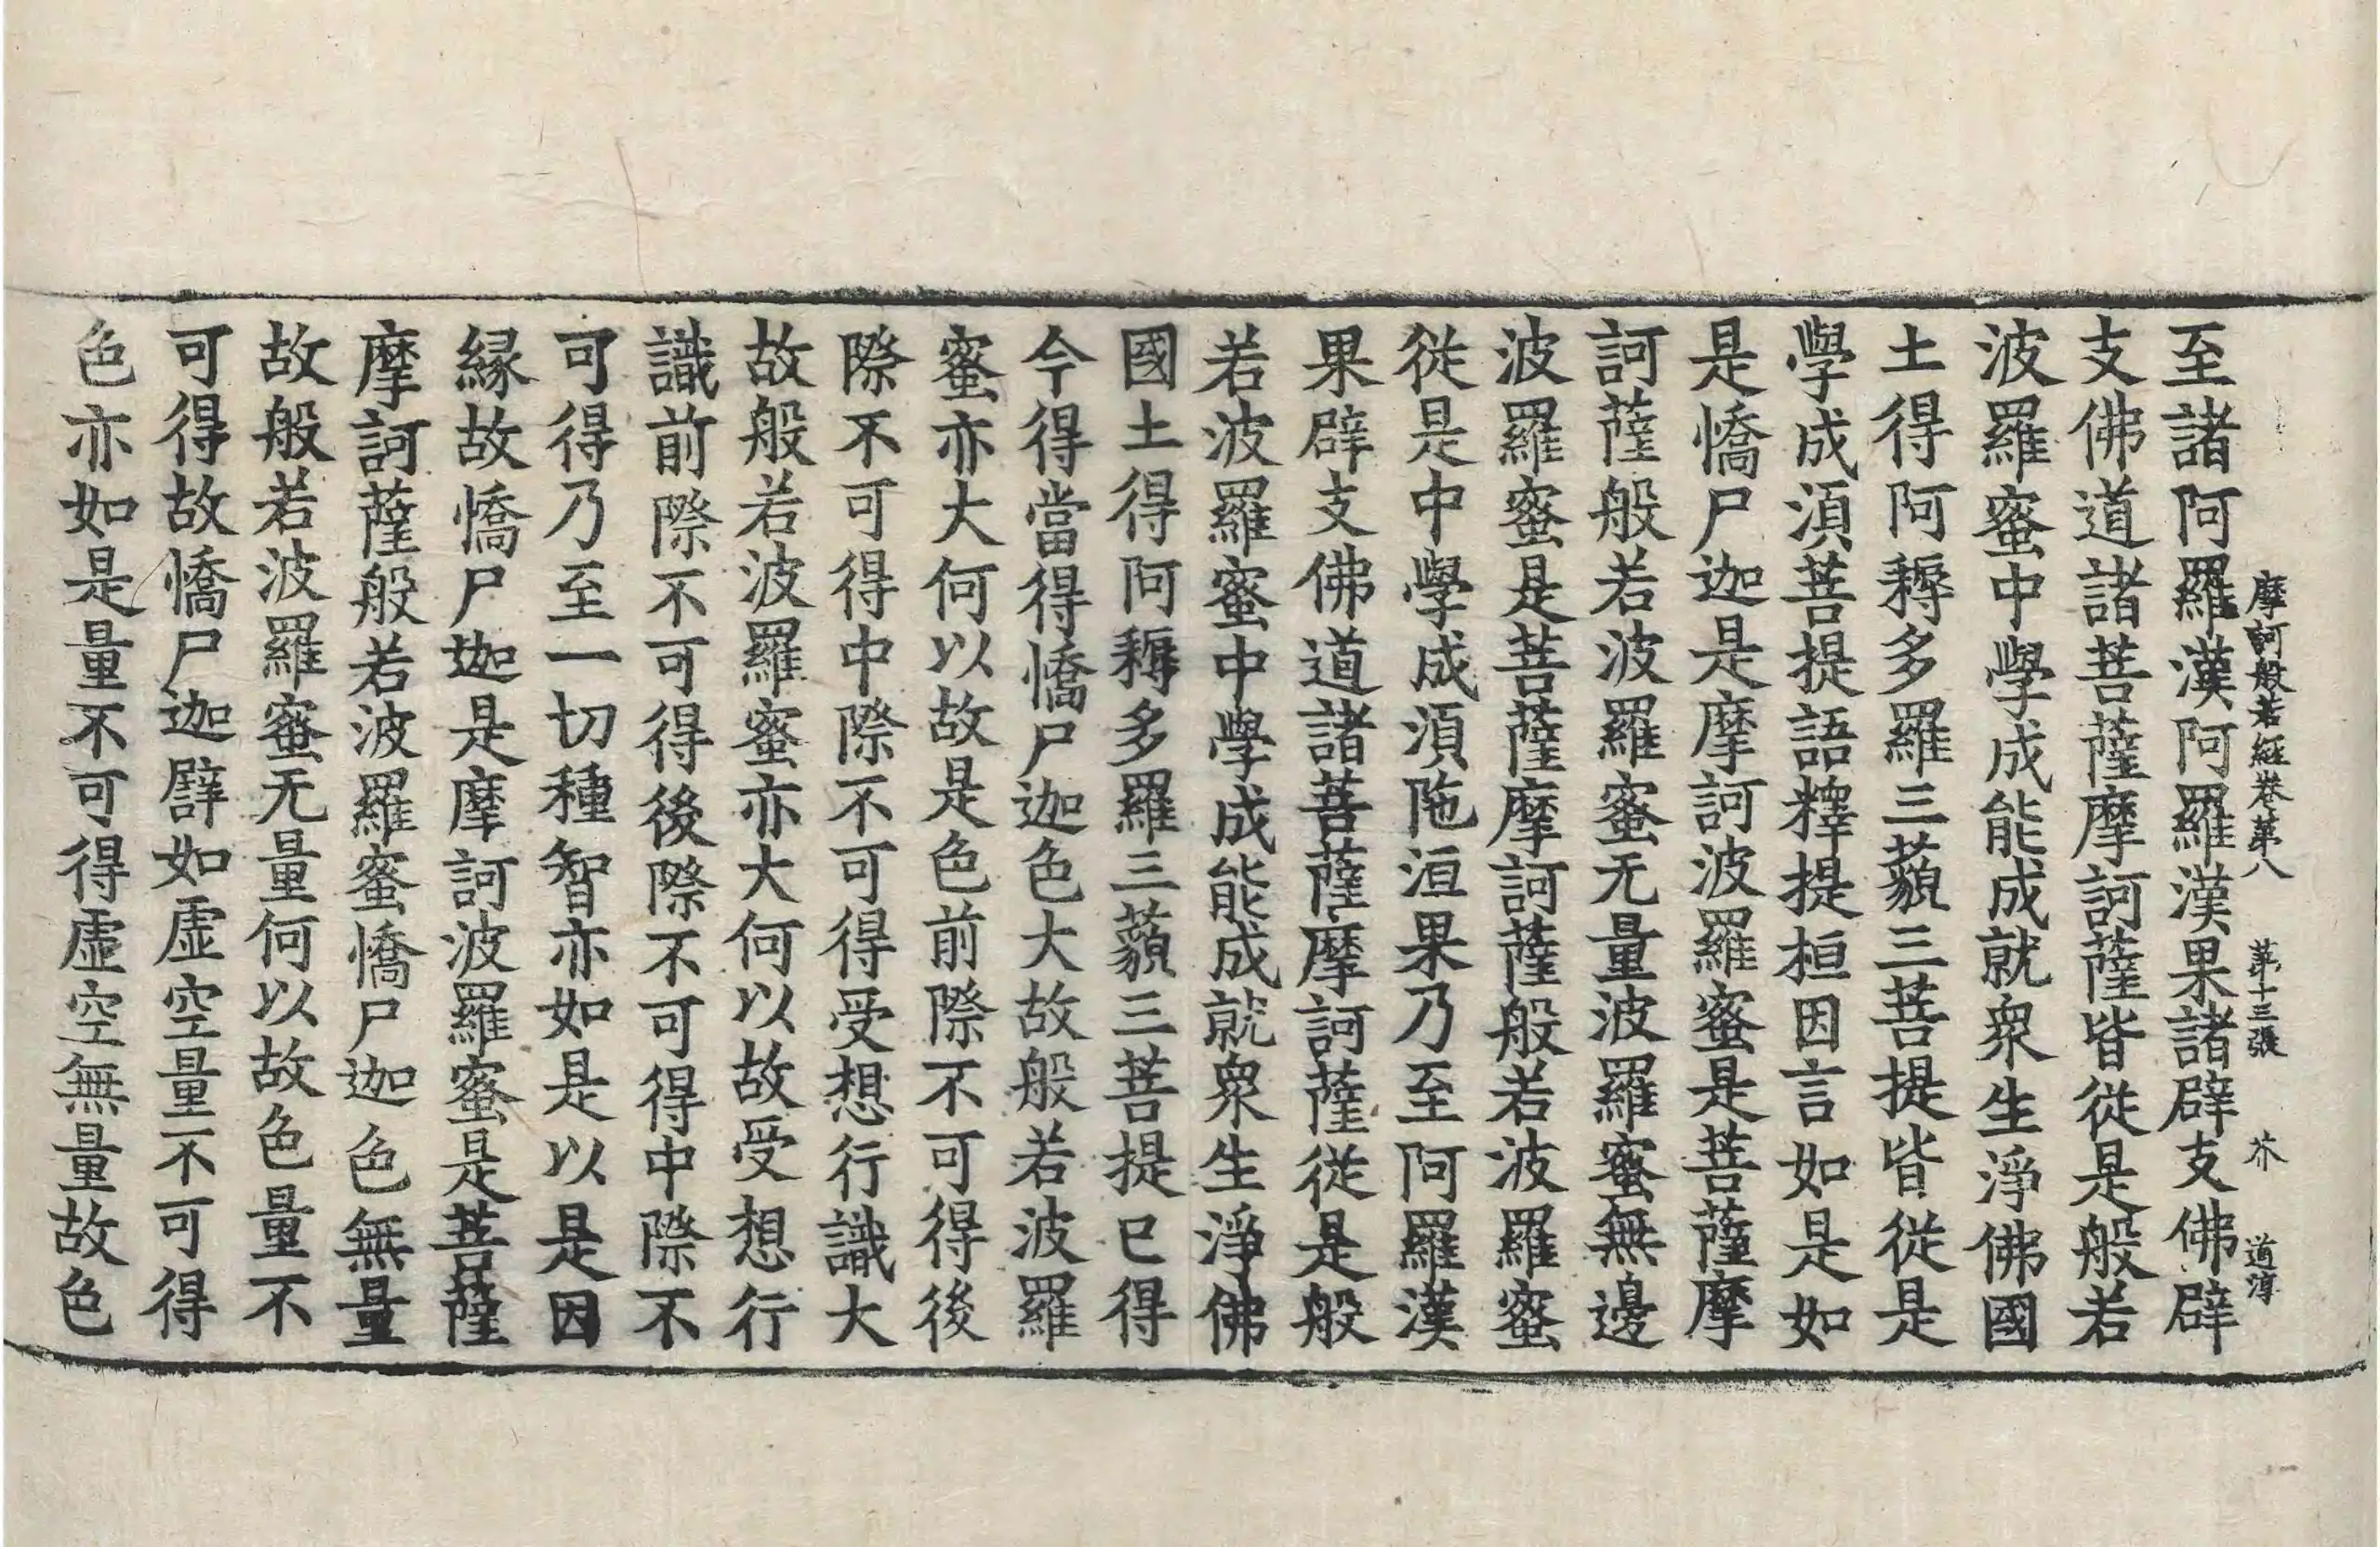 摩訶般若經卷第八　第十三張　芥　道淳
至諸阿羅漢阿羅漢果諸辟支佛辟
支佛道諸菩薩摩訶薩皆從是般若
波羅蜜中學成能成就衆生淨佛國
土得阿耨多羅三藐三菩提皆從是
學成湏菩提語釋提桓因言如是如
是憍尸迦是摩訶波羅蜜是菩薩摩
訶薩般若波羅蜜无量波羅蜜無邊
波羅蜜是菩薩摩訶薩般若波羅蜜
從是中學成湏陁洹果乃至阿羅漢
果辟支佛道諸菩薩摩訶薩從是般
若波羅蜜中學成能成就衆生淨佛
國土得阿耨多羅三藐三菩提已得
今得當得憍尸迦色大故般若波羅
蜜亦大何以故是色前際不可得後
際不可得中際不可得受想行識大
故般若波羅蜜亦大何以故受想行
識前際不可得後際不可得中際不
可得乃至一切種智亦如是以是因
緣故憍尸迦是摩訶波羅蜜是菩薩
摩訶薩般若波羅蜜憍尸迦色無量
故般若波羅蜜无量何以故色量不
可得故憍尸迦譬如虛空量不可得
色亦如是量不可得虛空無量故色